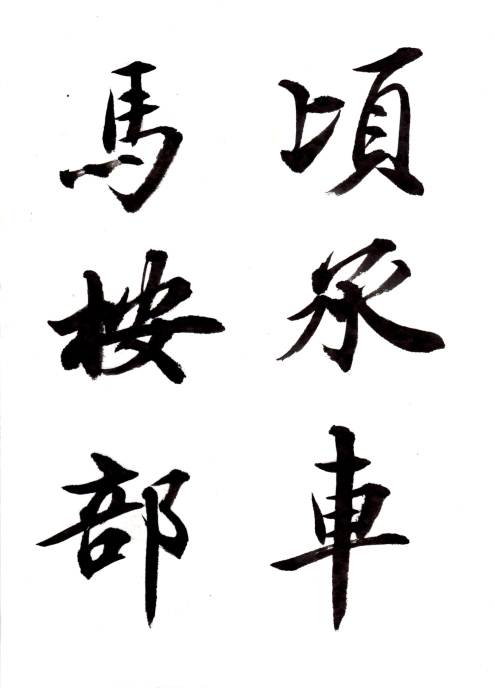 頃承車
馬按部